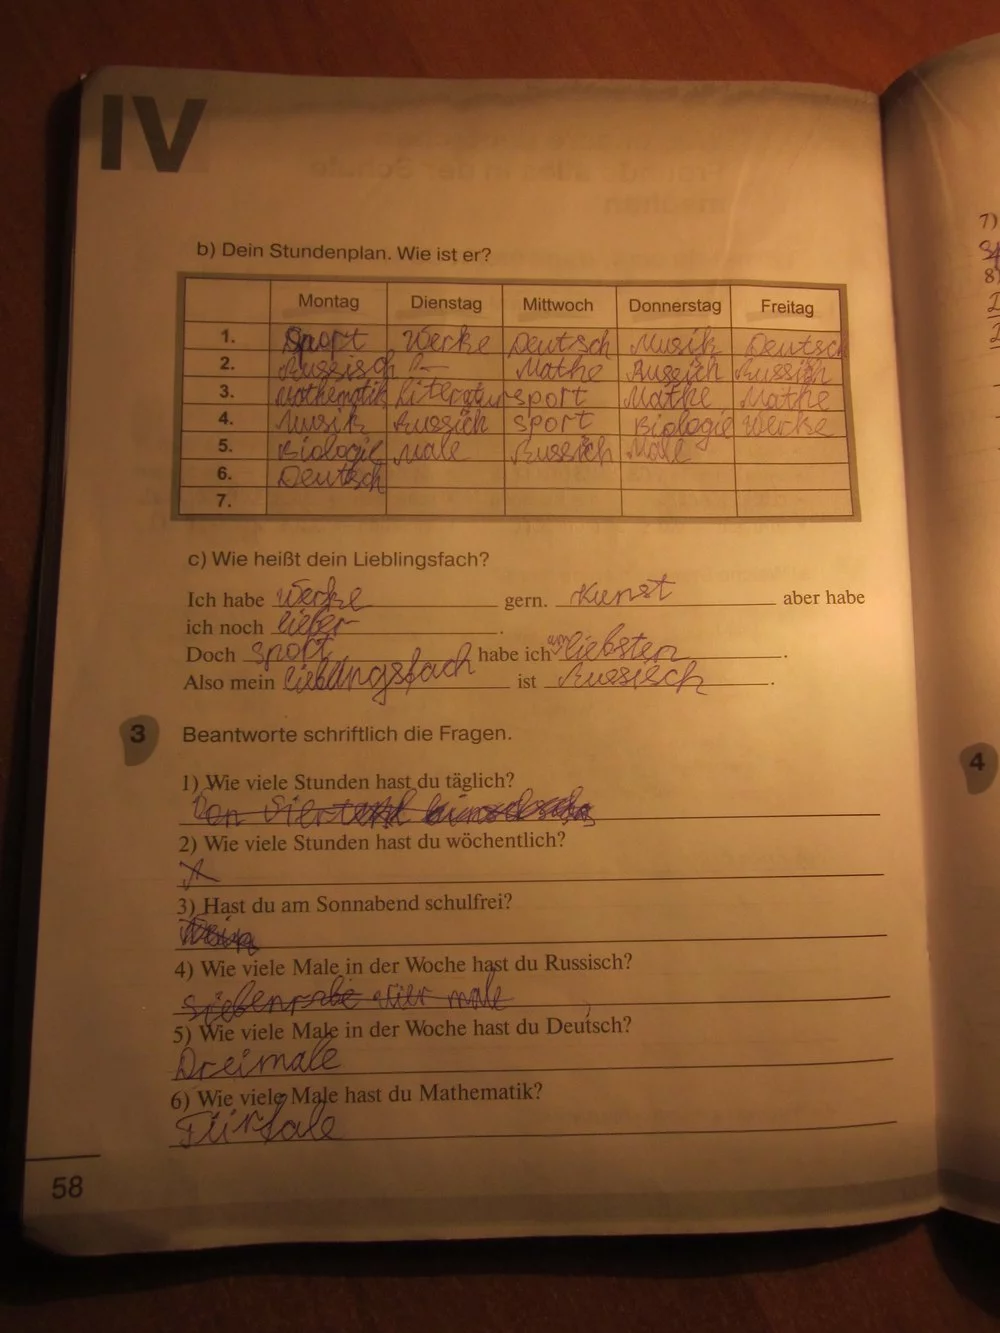 IV
b) Dein Stundenplan. Wie ist er?
Montag Dienstag Mittwoch Donnerstag Freitag
1. Sport Werke Deutsch Musik Deutsch
2. Russisch Mathe Russich Russich
3. Mathematik Literatur sport Mathe Mathe
4. Musik Russich sport Biologie Werke
5. Biologie Male Russich Male
6. Deutsch
7.
c) Wie heißt dein Lieblingsfach?
Ich habe Werke gern. Kunst aber habe
ich noch lieber.
Doch sport habe ich am liebsten.
Also mein lieblingsfach ist Russisch.
3 Beantworte schriftlich die Fragen.
1) Wie viele Stunden hast du täglich?
2) Wie viele Stunden hast du wöchentlich?
3) Hast du am Sonnabend schulfrei?
Nein
4) Wie viele Male in der Woche hast du Russisch?
vier male
5) Wie viele Male in der Woche hast du Deutsch?
Dreimale
6) Wie viele Male hast du Mathematik?
58
7)
8)
4